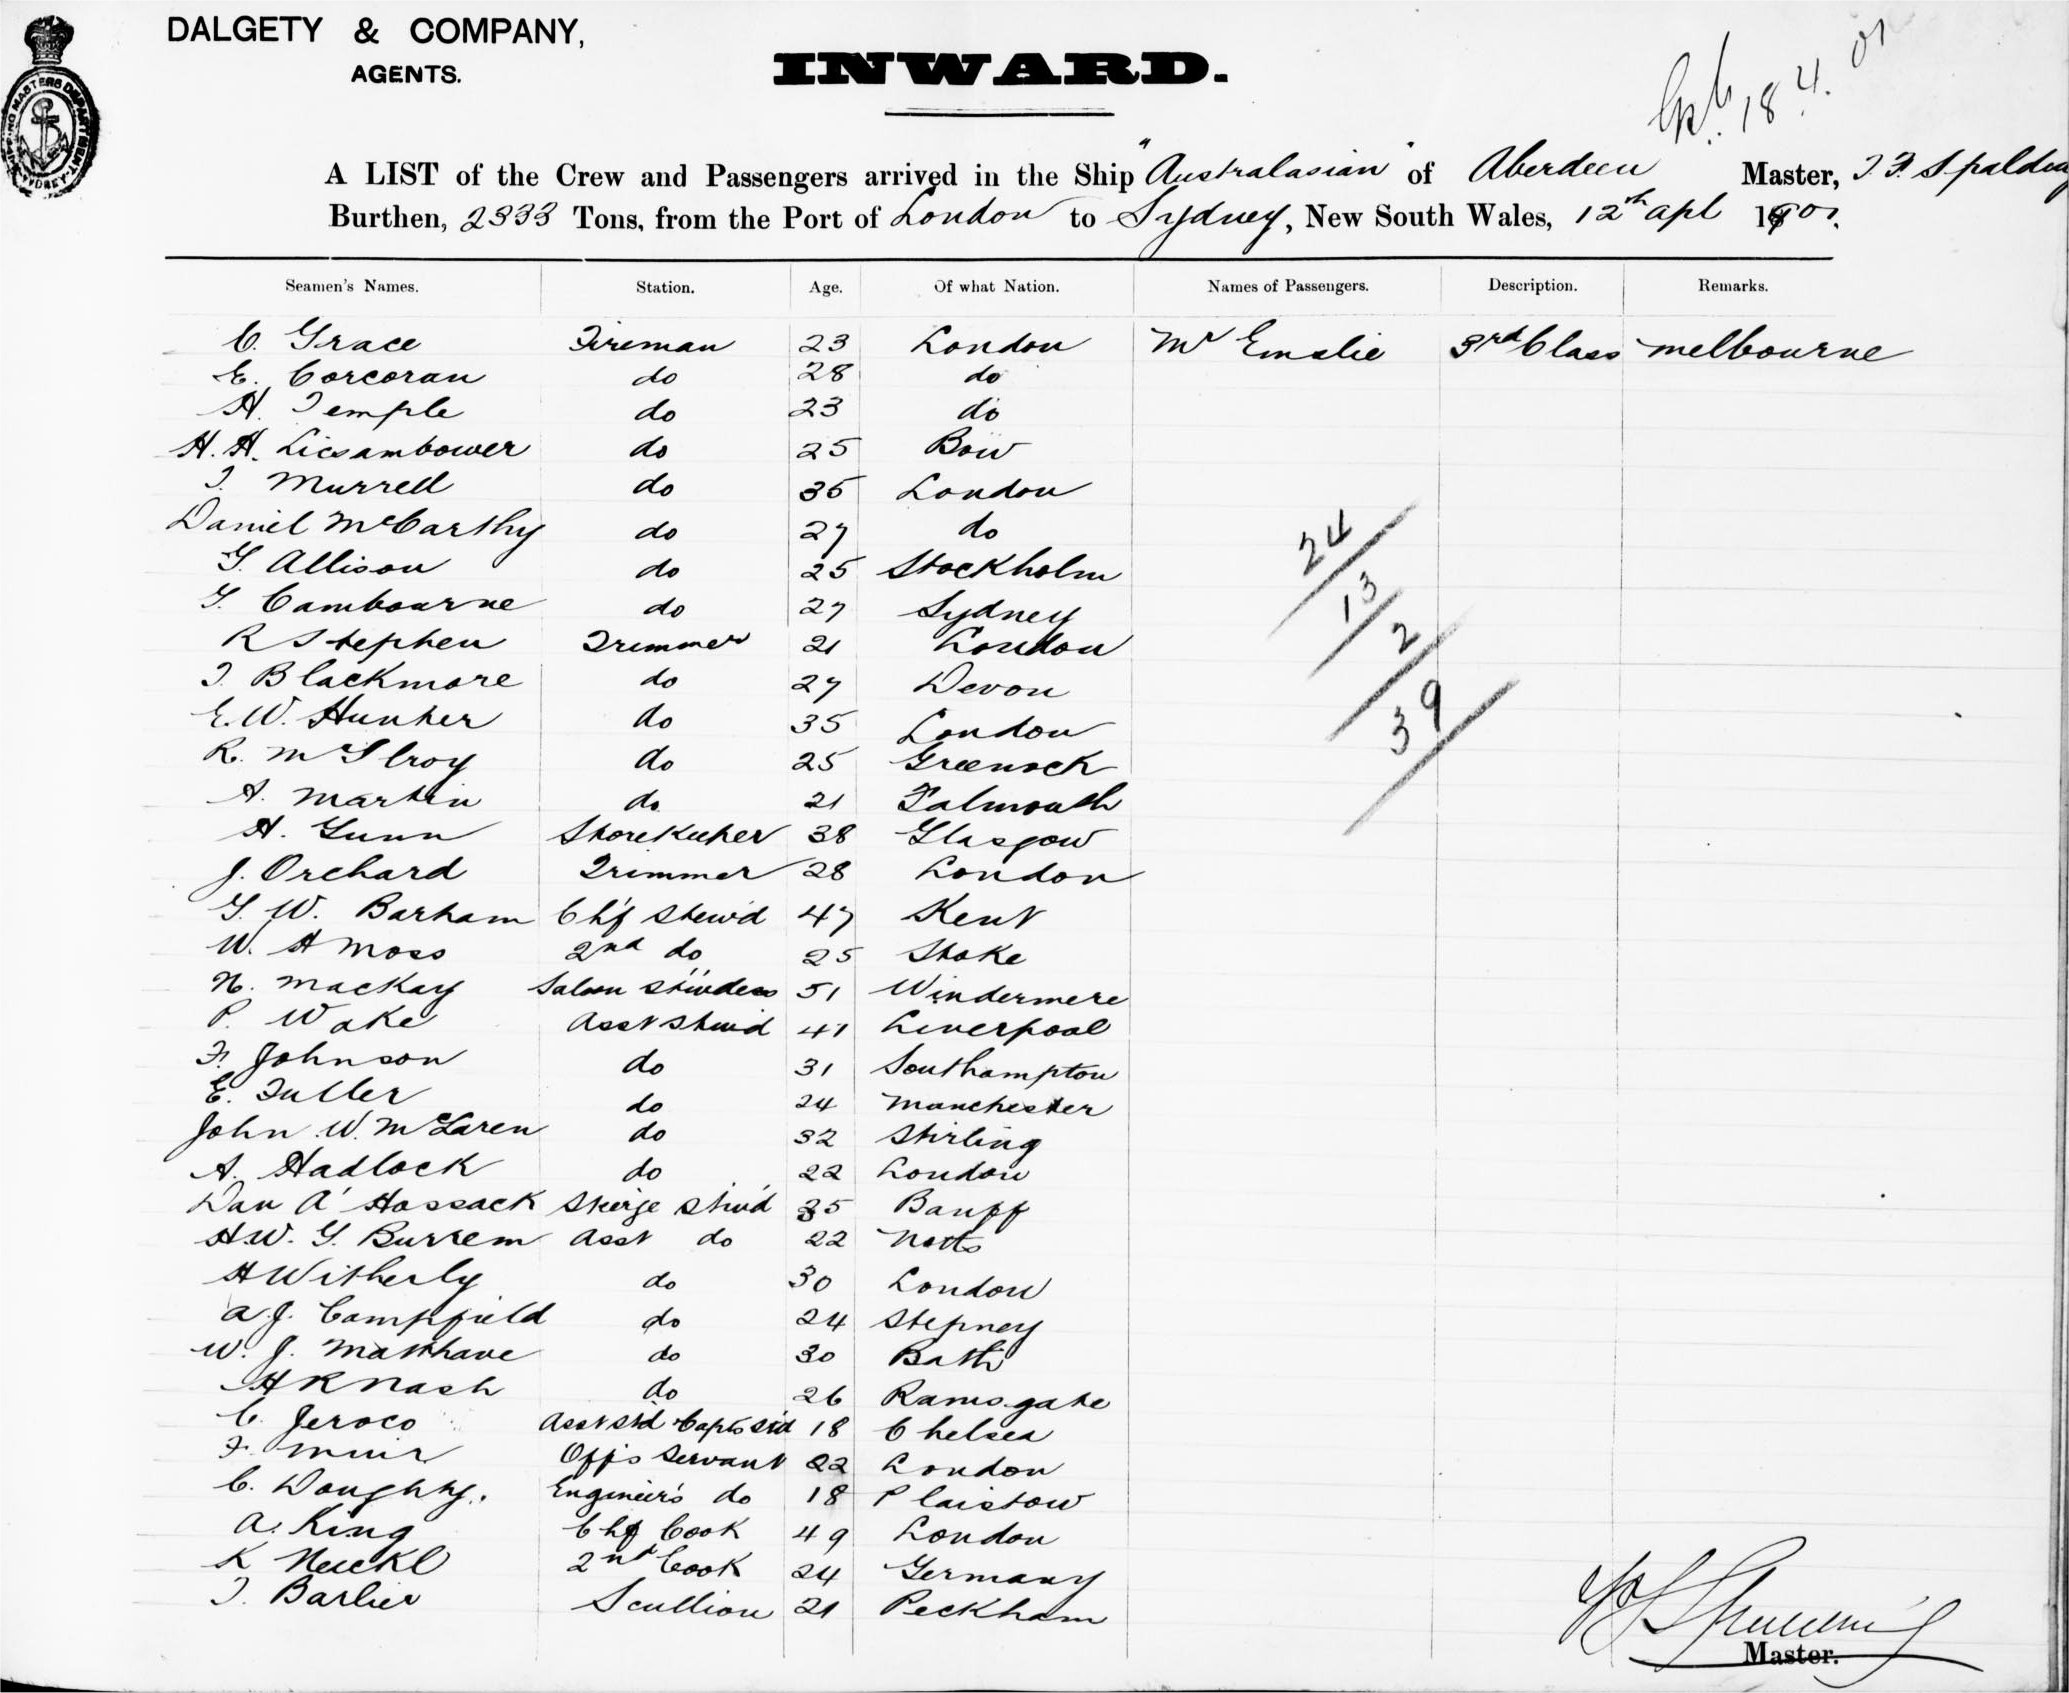 DALGETY & COMPANY,
AGENTS.
INWARD.
18.4.01
A LIST of the Crew and Passengers arrived in the Ship "Australasian" of Aberdeen Master, T. F. Spalding
Burthen, 2333 Tons, from the Port of London to Sydney, New South Wales, 12th Apl 1901.
Seamen's Names. Station. Age. Of what Nation. Names of Passengers. Description. Remarks.
C. Grace Fireman 23 London Mr Emslie 3rd Class Melbourne
E. Corcoran do 28 do
H. Temple do 23 do
H. H. Licsambower do 25 Bow
T. Murrell do 35 London
Daniel McCarthy do 27 do
G. Allison do 25 Stockholm
G. Cambourne do 27 Sydney
R Stephen Trimmer 21 London
T. Blackmore do 27 Devon
E. W. Hunter do 35 London
R. McIlroy do 25 Greenock
A. Martin do 21 Falmouth
H. Gunn Storekeeper 38 Glasgow
J. Orchard Trimmer 28 London
G. W. Barham Chf Stew'd 47 Kent
W. H Moss 2nd do 25 Stoke
N. Mackay Saloon Stwdess 51 Windermere
P. Wake Asst Stwd 41 Liverpool
F. Johnson do 31 Southampton
E. Fuller do 24 Manchester
John W. McLaren do 32 Stirling
A. Hadlock do 22 London
Dan A' Hossack Steerge Stwd 35 Banff
H.W. G. Burrem Asst do 22 Notts
H Witherly do 30 London
A. J. Campfield do 24 Stepney
W. J. Matthave do 30 Bath
H R Nash do 26 Ramsgate
C. Jeroco Asst Std Capts Std 18 Chelsea
F. Muir Offs Servant 22 London
C. Doughty. Engineer's do 18 Plaistow
A. King Chf Cook 49 London
K Neickl 2nd Cook 24 Germany
T. Barlier Scullion 21 Peckham
24
13
2
39
Master.